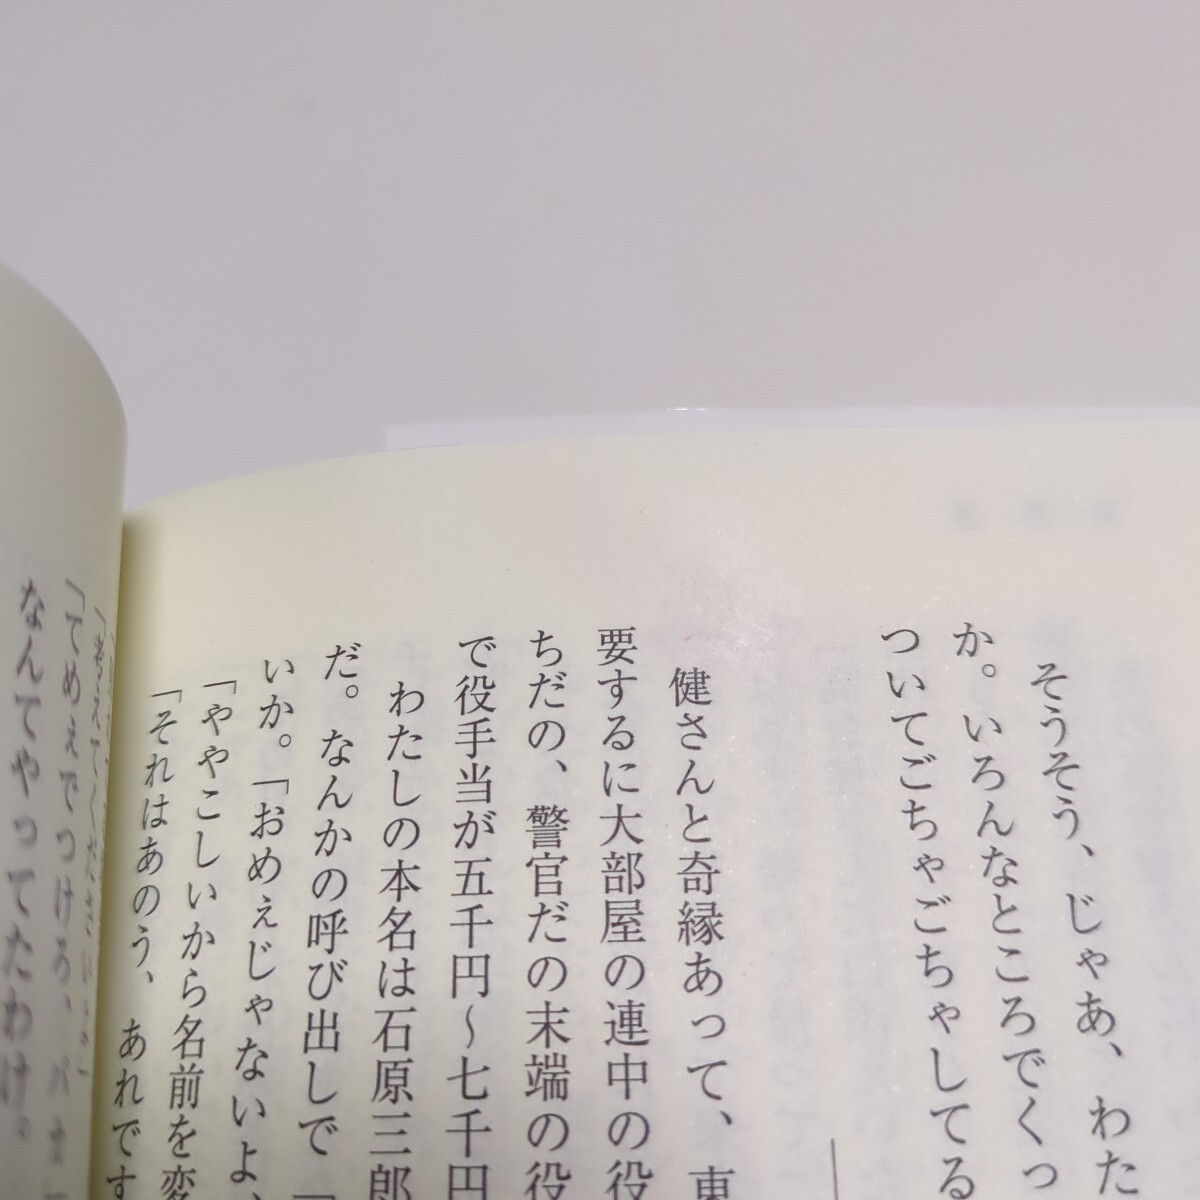 そうそう、じゃあ、わた
か。いろんなところでくっ
ついてごちゃごちゃしてる
健さんと奇縁あって、東
要するに大部屋の連中の役
ちだの、警官だの末端の役
で役手当が五千円～七千円
わたしの本名は石原三郎
だ。なんかの呼び出しで「
いか。「おめぇじゃないよ、
「ややこしいから名前を変
「それはあのう、あれです
「考えてくださいよ」
「てめぇでつけろ、バカ
なんてやってたわけ。